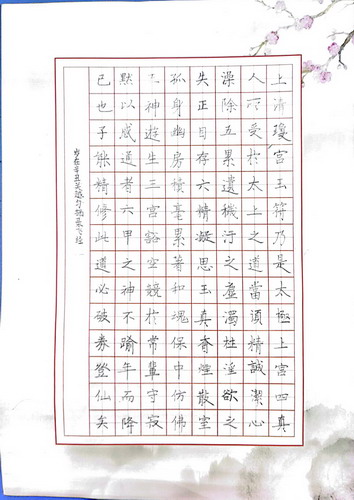 上清瓊宮玉符乃是太極上宮四真
人所受於太上之道當須精誠潔心
澡除五累遺穢汙之塵濁杜淫欲之
失正目存六精凝思玉真香煙散室
孤身幽房積毫累著和魂保中仿佛
五神遊生三宮豁空競於常輩守寂
默以感通者六甲之神不踰年而降
己也子能精修此道必破券登仙矣
岁在辛丑